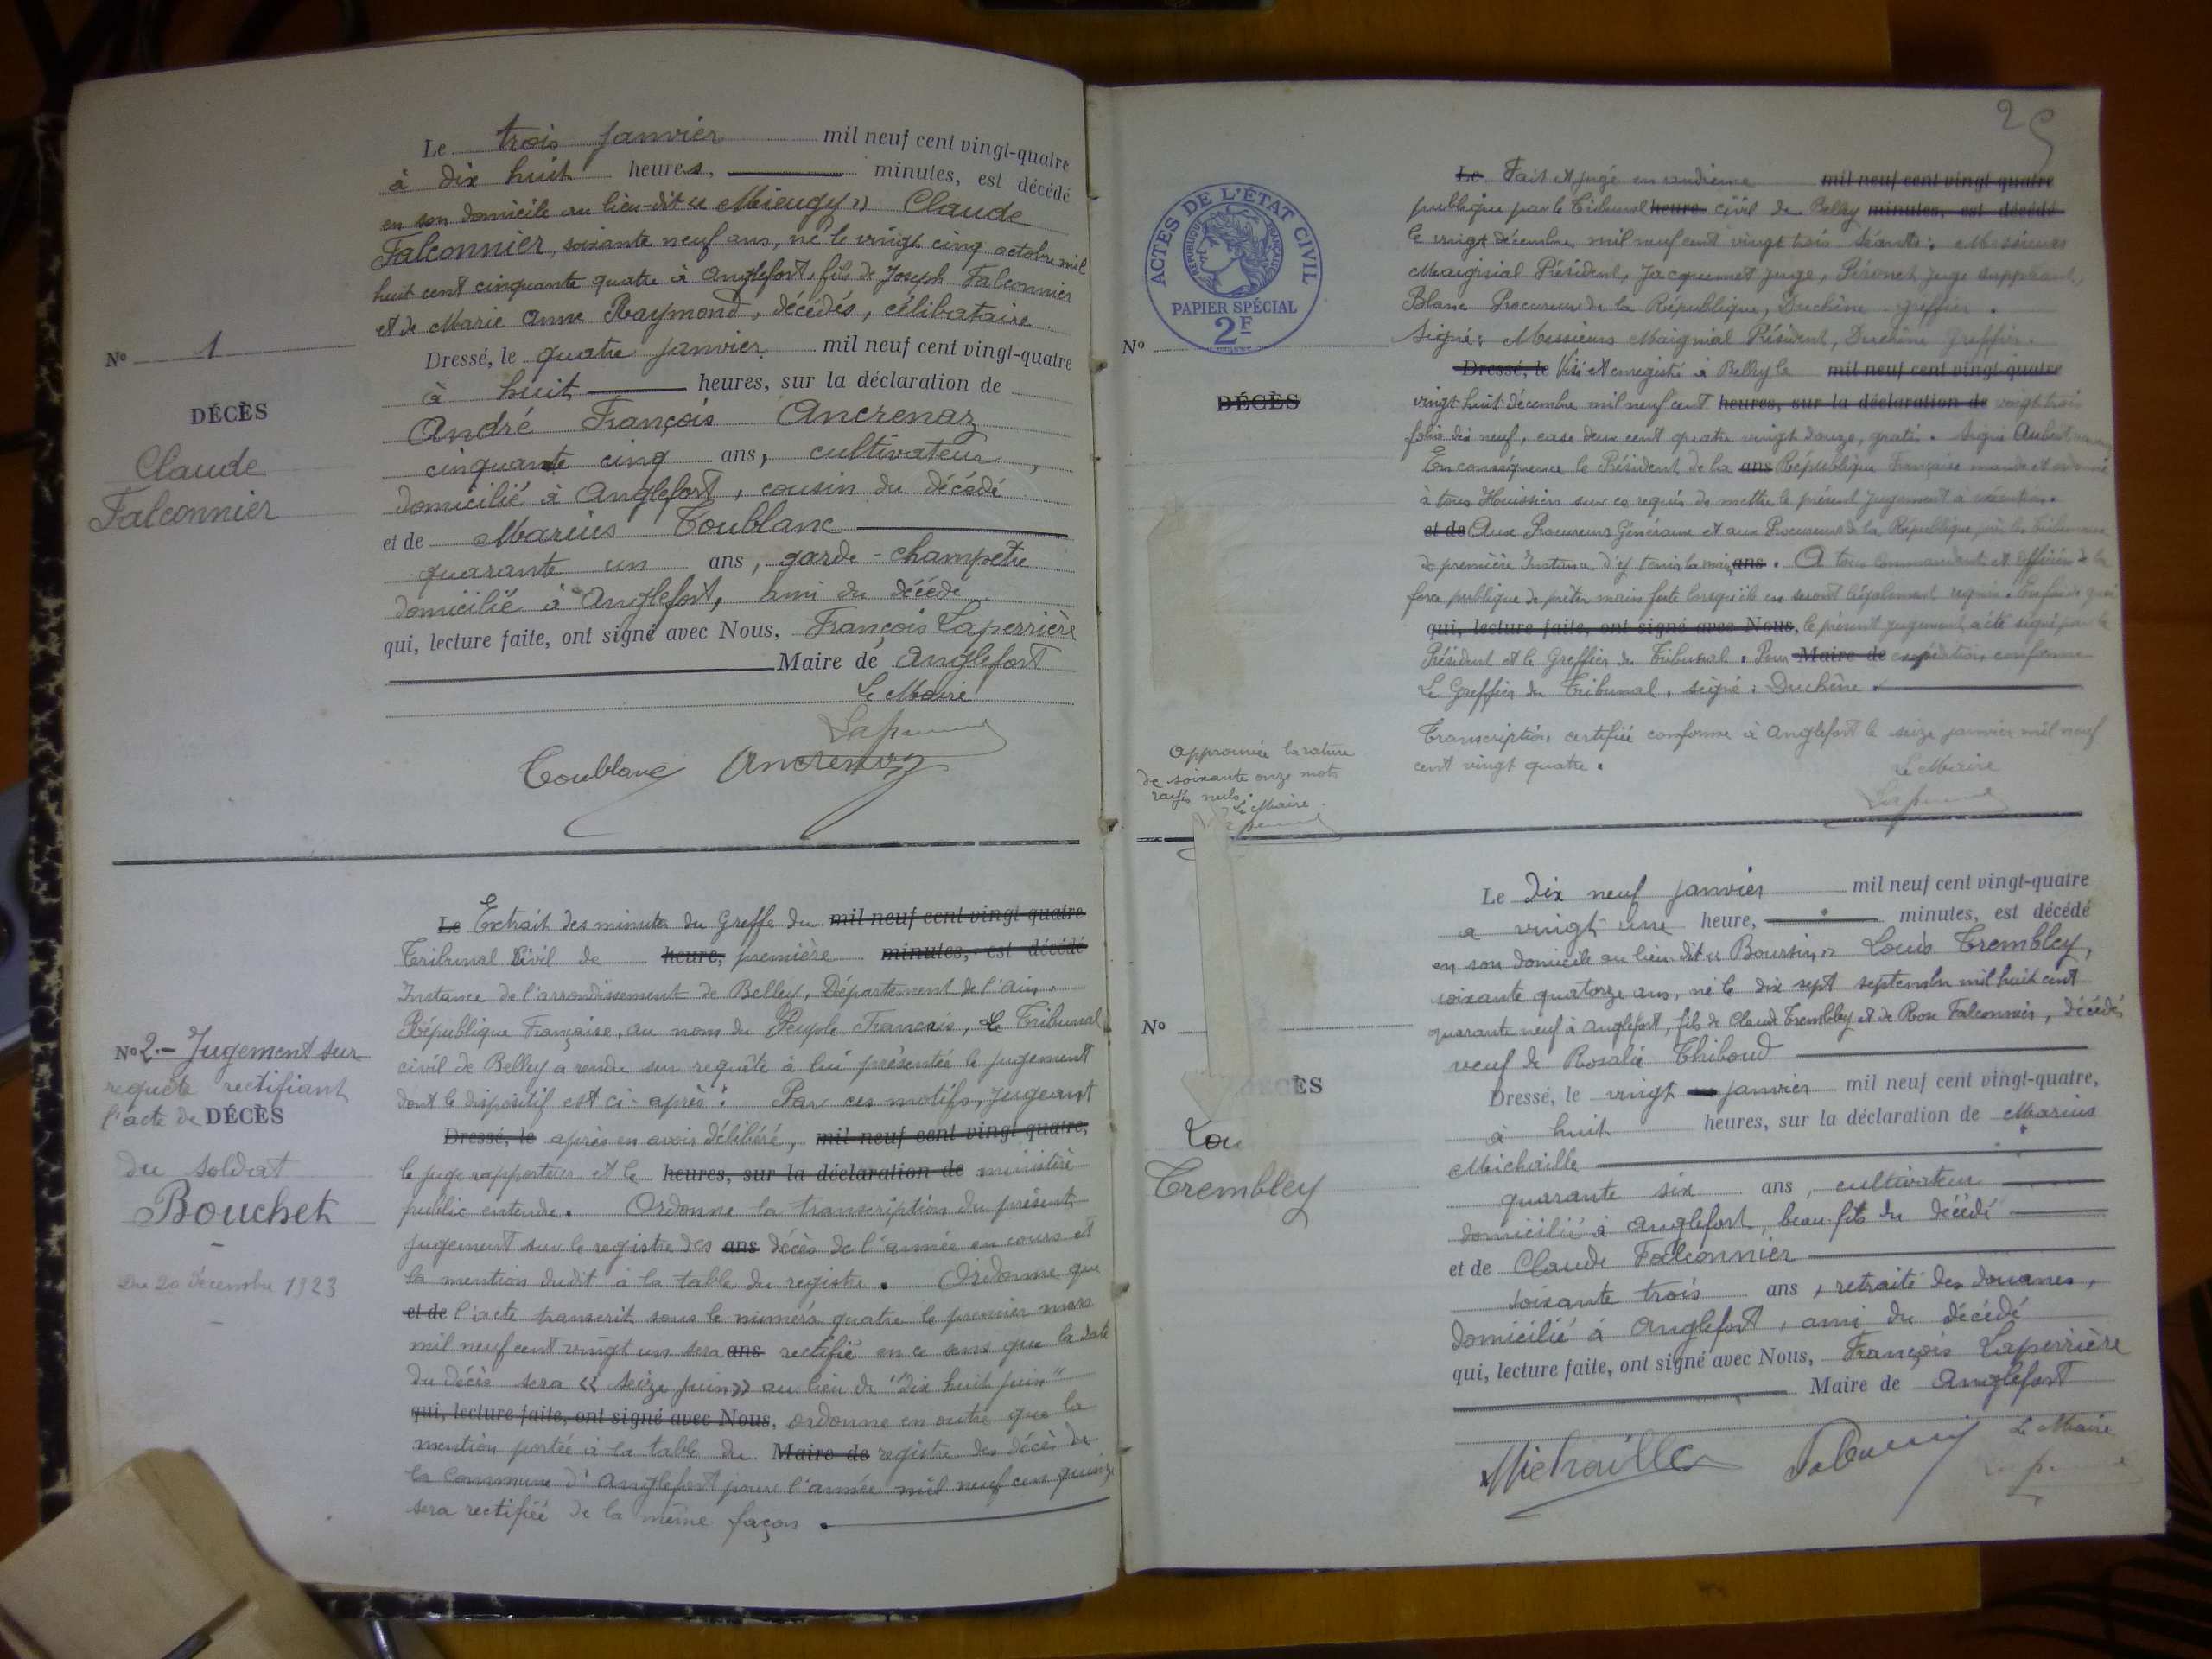 Le trois janvier mil neuf cent vingt-quatre
à dix huit heures, minutes, est décédé
en son domicile au lieu-dit « Mieugy » Claude
Falconnier, soixante neuf ans, né le vingt cinq octobre mil
huit cent cinquante quatre à Anglefort, fils de Joseph Falconnier
et de Marie Anne Raymond, décédés, célibataire.
Nº 1
Dressé, le quatre janvier mil neuf cent vingt-quatre
à huit heures, sur la déclaration de
DÉCÈS
André François Ancrenaz
Claude
cinquante cinq ans, cultivateur,
Falconnier
domicilié à Anglefort, cousin du décédé
et de Marius Toublanc
quarante un ans, garde-champêtre
domicilié à Anglefort, ami du décédé
qui, lecture faite, ont signé avec Nous, François Laperrière
Maire de Anglefort
Le Maire
Toublanc Ancrenaz
Le Extrait des minutes du Greffe du mil neuf cent vingt-quatre
Tribunal Civil de heure, première minutes, est décédé
Instance de l'arrondissement de Belley, Département de l'Ain.
République Française, au nom du Peuple Francais, Le Tribunal
Nº 2.- Jugement sur
civil de Belley a rendu sur requête à lui présentée le jugement
requete rectifiant
dont le dispositif est ci-après : Par ces motifs, jugeant
l'acte de DÉCÈS
Dressé, le après en avoir délibéré, mil neuf cent vingt-quatre,
du soldat
le juge rapporteur et le heures, sur la déclaration de ministère
Bouchet
public entendu. Ordonne la transcription du présent
jugement sur le registre des ans décès de l'année en cours et
Du 20 Décembre 1923
la mention dudit à la table du registre. Ordonne que
et de l'acte transcrit sous le numéro quatre le premier mars
mil neuf cent vingt un sera ans rectifié en ce sens que la date
du décès sera « seize juin » au lieu de "dix huit juin"
qui, lecture faite, ont signé avec Nous, ordonne en outre que la
mention portée à la table du Maire de registre des décès de
la Commune d'Anglefort pour l'année mil neuf cent quinze
sera rectifiée de la même façon.
25
ACTES DE L'ÉTAT CIVIL
RÉPUBLIQUE FRANÇAISE
PAPIER SPÉCIAL
2F
Le Fait et jugé en audience mil neuf cent vingt-quatre
publique par le Tribunal heure civil de Belley minutes, est décédé
le vingt décembre mil neuf cent vingt trois séants : Messieurs
Maignial Président, Jacquemet juge, Péronet juge suppléant,
Blanc Procureur de la République, Duchêne greffier.
Signé : Messieurs Maignial Président, Duchêne greffier.
Nº
Dressé, le Visé et enregistré à Belley le mil neuf cent vingt-quatre
DÉCÈS
vingt-huit décembre mil neuf cent heures, sur la déclaration de vingt trois
folio dix neuf, case deux cent quatre vingt douze, gratis. Signé Aubert
En conséquence le Président de la ans République Française mande et ordonne
à tous Huissiers sur ce requis de mettre le présent jugement à exécution.
et de Aux Procureurs Généraux et aux Procureurs de la République près les Tribunaux
de première Instance d'y tenir la main ans. A tous Commandants et officiers de la
force publique de prêter main forte lorsqu'ils en seront légalement requis. En foi de quoi
qui, lecture faite, ont signé avec Nous, le présent jugement a été signé par le
Président et le Greffier du Tribunal. Pour Maire de expédition conforme
Le Greffier du Tribunal, signé : Duchêne.
Transcription certifiée conforme à Anglefort le seize janvier mil neuf
cent vingt quatre.
Le Maire
Approuvée la rature
de soixante onze mots
rayés nuls.
Le Maire
Le Dix neuf janvier mil neuf cent vingt-quatre
a vingt une heure, minutes, est décédé
en son domicile au lieu-dit « Boursin » Louis Trembley,
soixante quatorze ans, né le dix sept septembre mil huit cent
quarante neuf à Anglefort, fils de Claude Trembley et de Rose Falconnier, décédés
Nº
veuf de Rosalie Thiboud
Dressé, le vingt janvier mil neuf cent vingt-quatre,
ÈS
à huit heures, sur la déclaration de Marius
Lou
Michaille
Trembley
quarante six ans, cultivateur
domicilié à Anglefort, beau-fils du décédé
et de Claude Falconnier
soixante trois ans, retraité des douanes,
domicilié à Anglefort, ami du décédé
qui, lecture faite, ont signé avec Nous, François Laperrière
Maire de Anglefort
Le Maire
Michaille